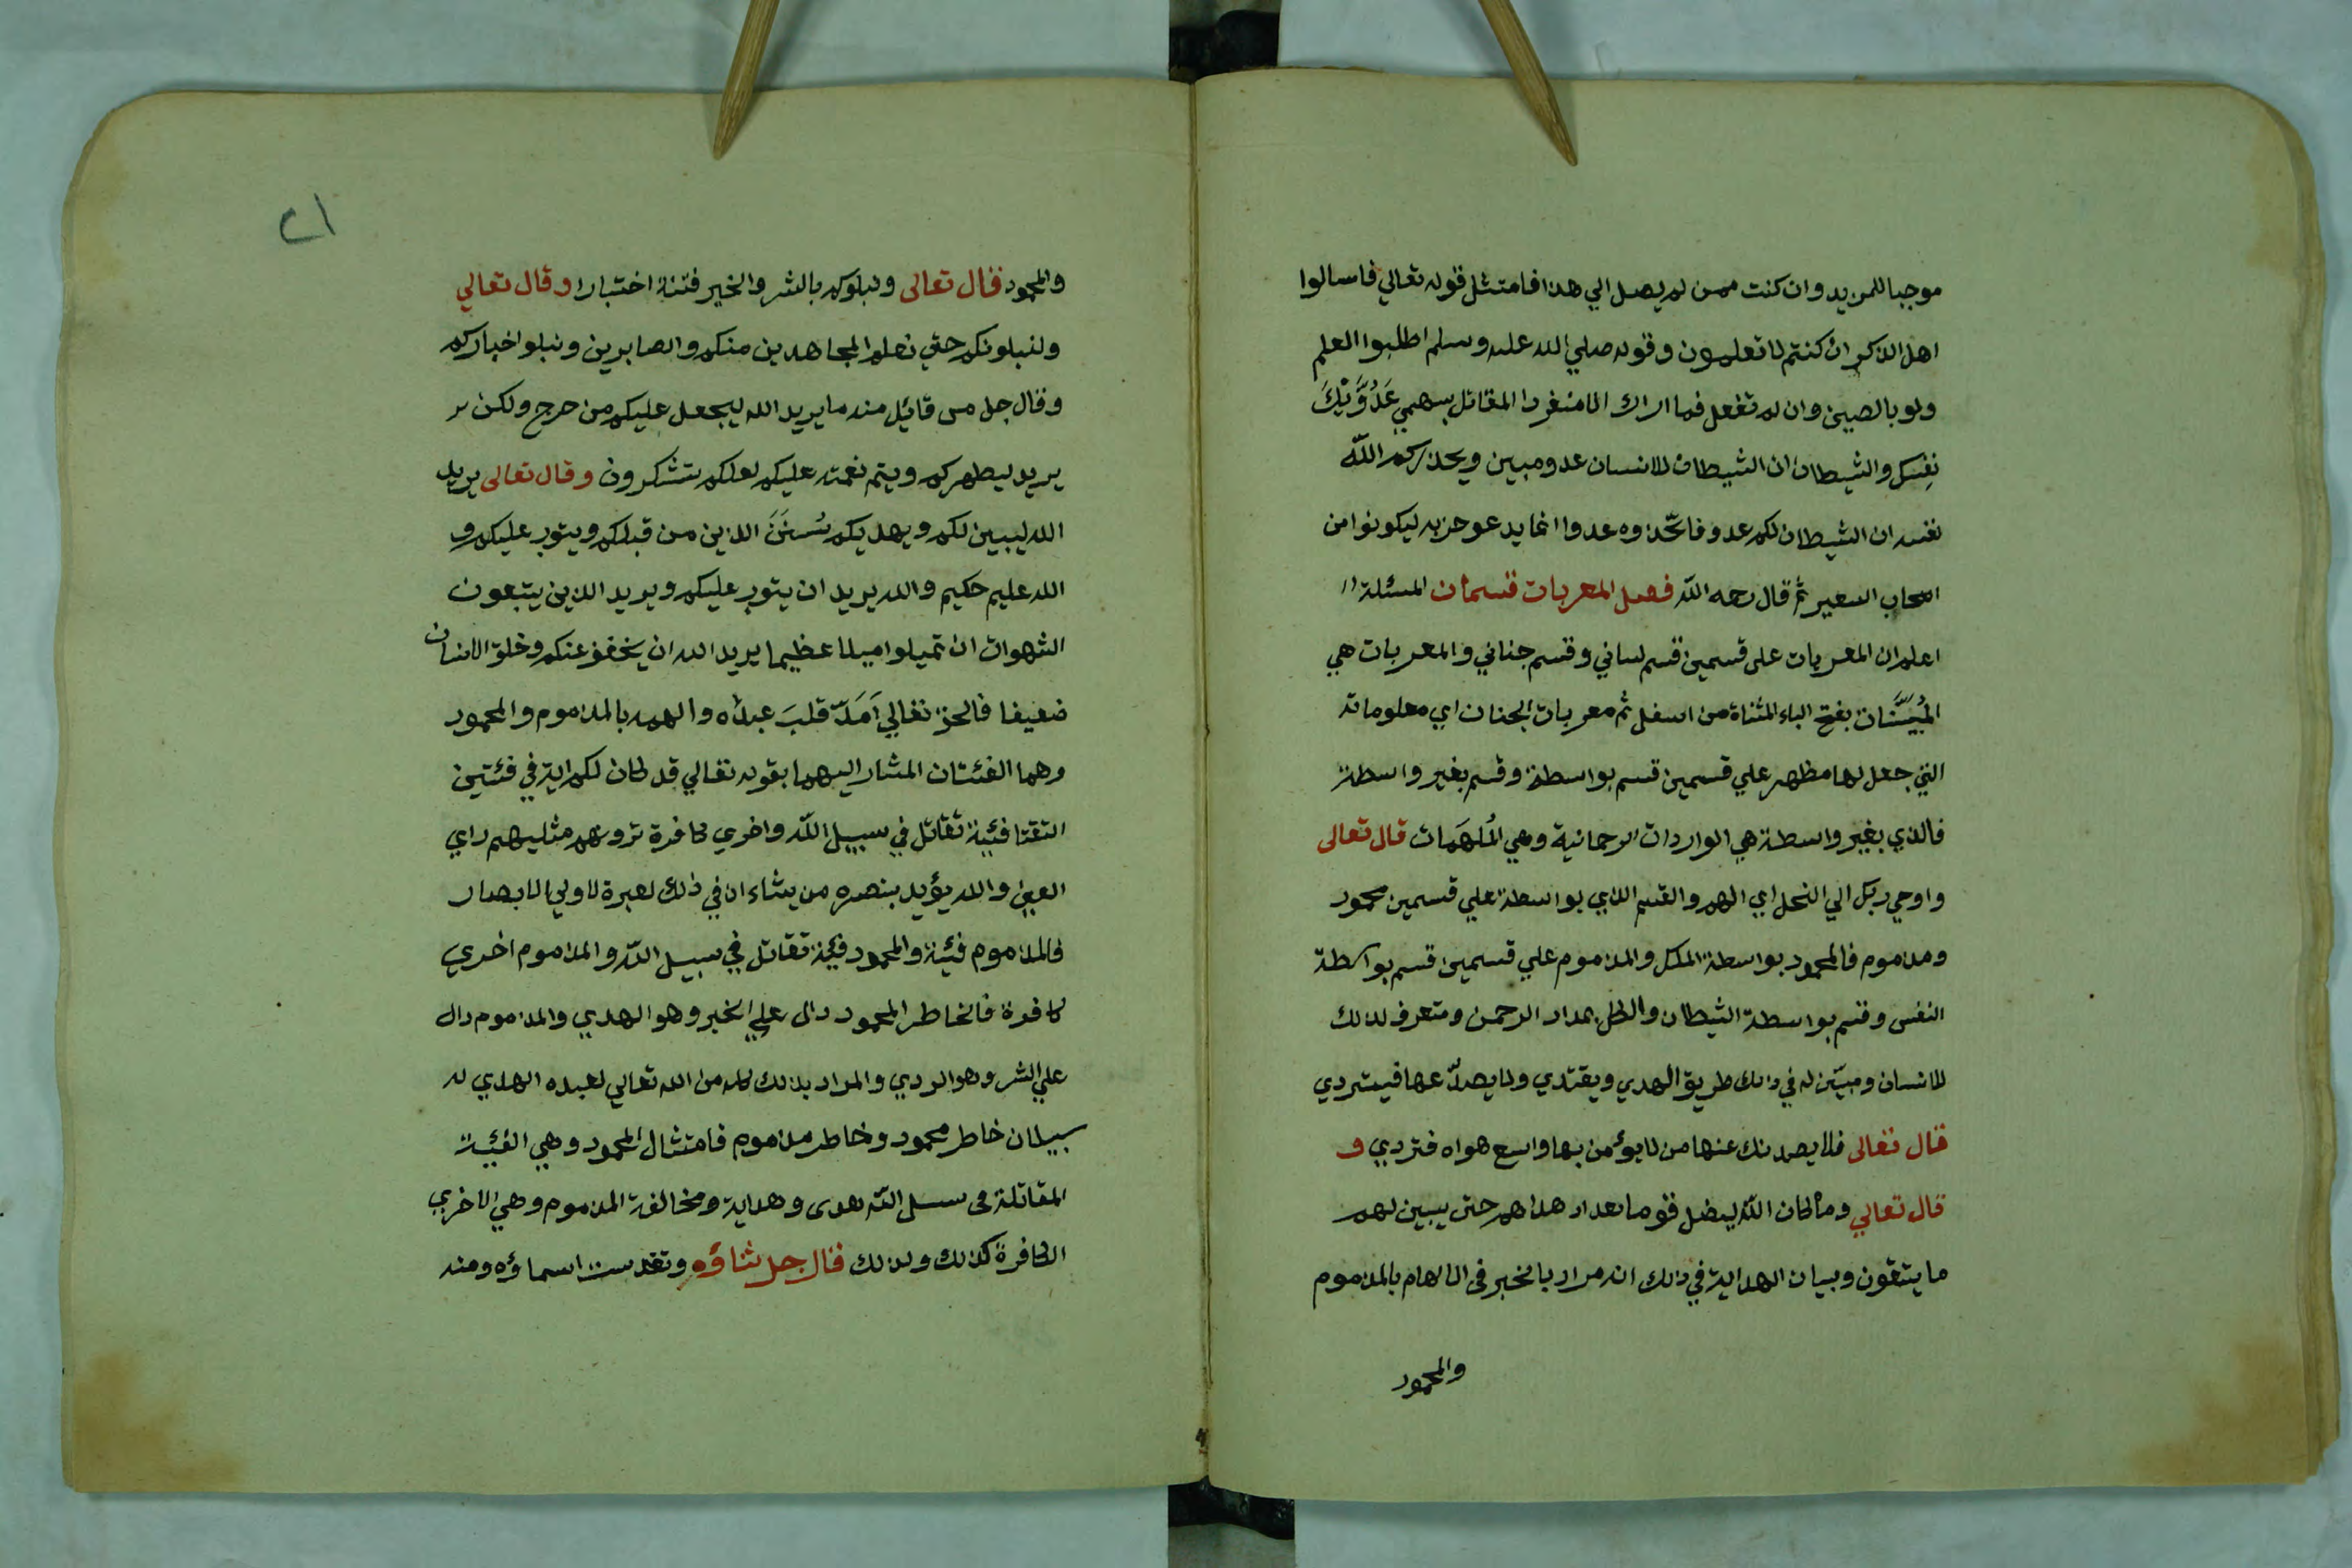 موجبا للمزيد وان كنت ممن لم يصل الي هذا فامتثل قوله تعالي فاسالوا
اهل الذكر ان كنتم لا تعلمون وقوله صلي الله عليه وسلم اطلبوا العلم
ولو بالصين وان لم تفعل فما اراك الا منفردا المقاتل بسهمي عَدُوَّيْكَ
نفسك والشيطان ان الشيطان للانسان عدو مبين ويحذركم الله
نفسه ان الشيطان لكم عدو فاتخذوه عدوا انما يدعو حزبه ليكونوا من
اصحاب السعير ثم قال رحمه الله فصل المعربات قسمان المسئلة
اعلم ان المعربات على قسمين قسم لساني وقسم جناني والمعربات هي
المُبَيَّنَات بفتح الياء المثناة من اسفل ثم معربات الجنان اي معلوماته
التي جعل لها مظهر علي قسمين قسم بواسطة وقسم بغير واسطة
فالذي بغير واسطة هي الواردات الرحمانية وهي المُلهَمَات قال تعالى
واوحي ربك الي النحل اي الهم والقسم الذي بواسطة علي قسمين محمود
ومذموم فالمحمود بواسطة الملك والمذموم علي قسمين قسم بواسطة
النفس وقسم بواسطة الشيطان والكل بمداد الرحمن ومتعرف لذلك
للانسان ومبيّن له في ذلك طريق الهدي ويقتدي ولا يصدّ عنها فيتردي
قال تعالى فلا يصدنك عنها من لا يؤمن بها واتبع هواه فتردي و
قال تعالي وما كان الله ليضل قوما بعد اذ هداهم حتى يبين لهم
ما يتقون وبيان الهداية في ذلك انه مراد بالخبر في الالهام بالمذموم
والمحمود
٢١
والمحمود فقال تعالى ونبلوكم بالشر والخير فتنة اختبارا وقال تعالي
ولنبلونكم حتي نعلم المجاهدين منكم والصابرين ونبلو اخباركم
وقال جل من قائل منه ما يريد الله ليجعل عليكم من حرج ولكن
يريد ليطهركم ويتم نعمته عليكم لعلكم تشكرون وقال تعالى يريد
الله ليبين لكم ويهديكم سُنَنَ الذين من قبلكم ويتوب عليكم و
الله عليم حكيم والله يريد ان يتوب عليكم ويريد الذين يتبعون
الشهوات ان تميلوا ميلا عظيما يريد الله ان يخفف عنكم وخلق الانسان
ضعيفا فالحق تعالي اَمَدّ قلبَ عبده والهمه بالمذموم والمحمود
وهما الفئتان المشار اليهما بقوله تعالي قد كان لكم اية في فئتين
التقتا فئية تقاتل في سبيل الله واخري كافرة ترونهم مثليهم راي
العين والله يؤيد بنصره من يشاء ان في ذلك لعبرة لاولي الابصار
فالمذموم فئية والمحمود فئية تقاتل في سبيل الله والمذموم اخري
كافرة فالخاطر المحمود دال علي الخير وهو الهدي والمذموم دال
علي الشر وهو الردي والمراد بذلك كله من الله تعالي لعبده الهدي له
سبيلان خاطر محمود وخاطر مذموم فامتثال المحمود وهي الفئية
المقاتلة في سبيل الله هدى وهداية ومخالفة المذموم وهي الاخري
الكافرة كذلك ولذلك قال جل ثناؤه وتقدست اسماؤه ومنه